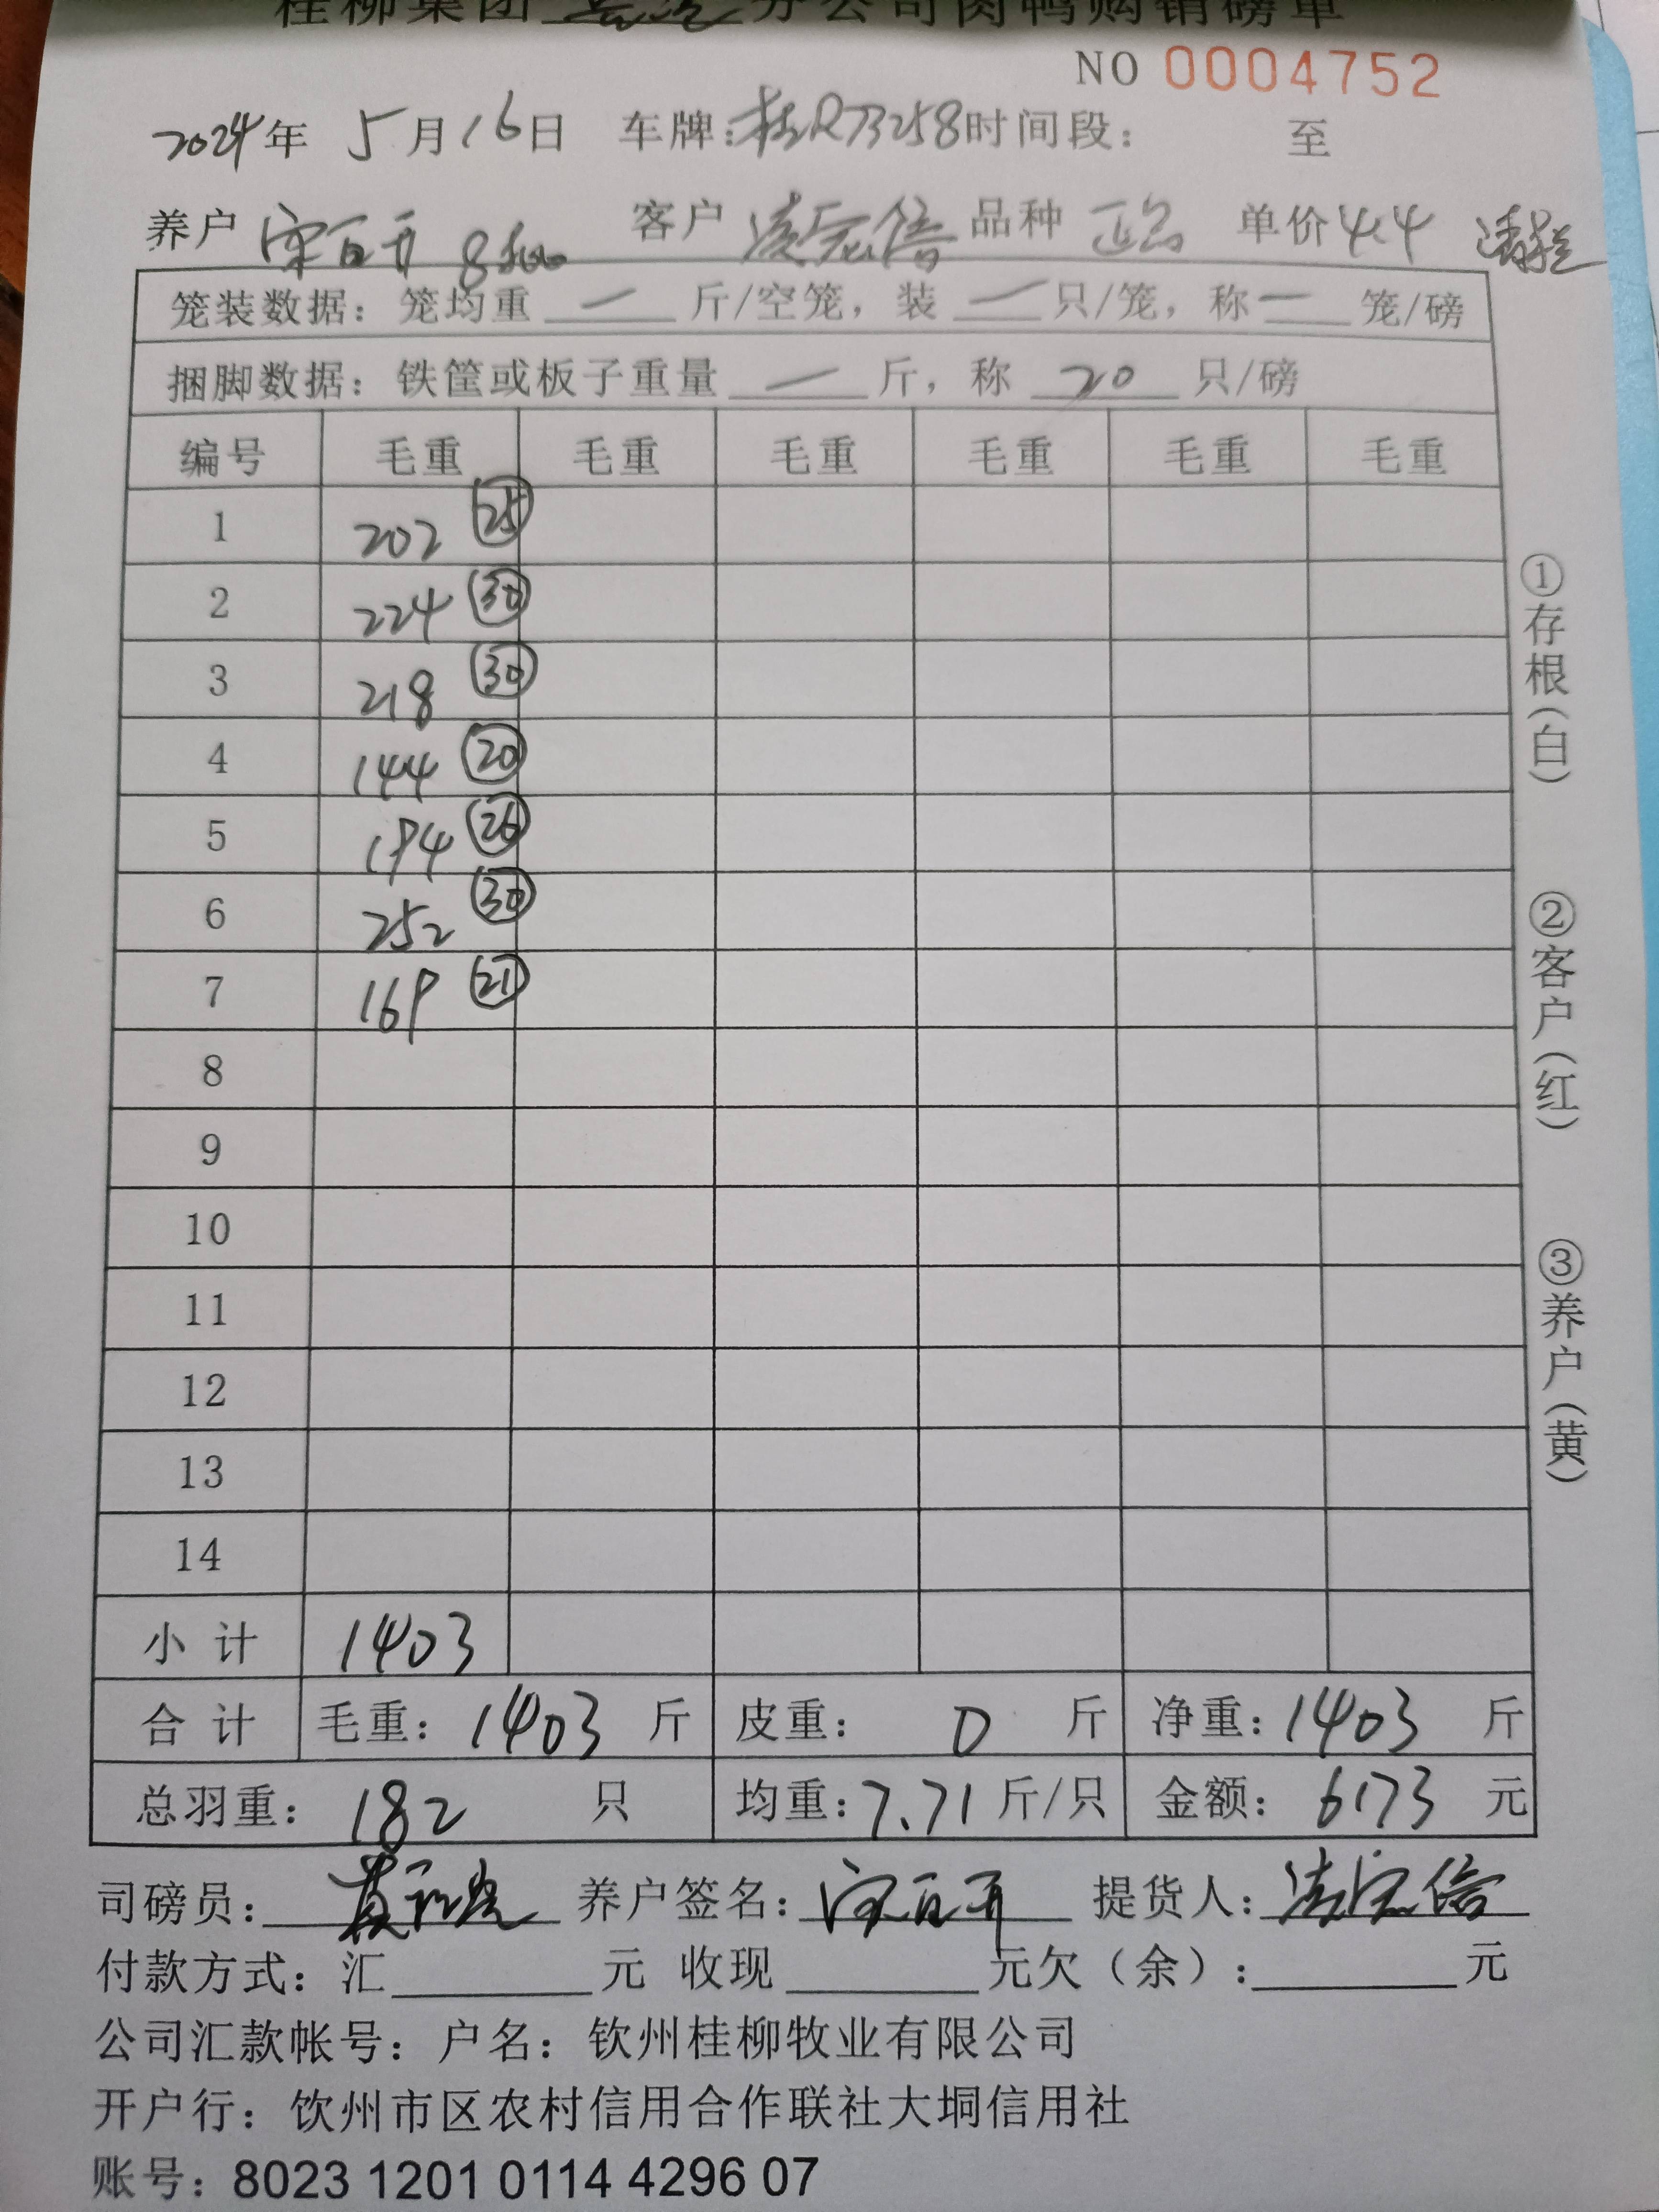 桂柳集团 分公司肉鸭购销磅单
NO 0004752
2024年 5月16日 车牌:桂R73258时间段: 至
养户 宋百开 客户 凌宏信 品种 单价4.4 清栏
笼装数据: 笼均重 一 斤/空笼, 装 一 只/笼, 称 一 笼/磅
捆脚数据: 铁筐或板子重量 一 斤, 称 20 只/磅
编号 毛重 毛重 毛重 毛重 毛重 毛重
1 202 25
2 224 30
3 218 30
4 144 20
5 194 26
6 252 30
7 169 21
8
9
10
11
12
13
14
小计 1403
合计 毛重: 1403 斤 皮重: 0 斤 净重: 1403 斤
总羽重: 182 只 均重: 7.71 斤/只 金额: 6173 元
司磅员: 养户签名: 宋百开 提货人: 凌宏信
付款方式: 汇 元 收现 元欠(余): 元
公司汇款帐号: 户名: 钦州桂柳牧业有限公司
开户行: 钦州市区农村信用合作联社大垌信用社
账号: 8023 1201 0114 4296 07
①存根(白)
②客户(红)
③养户(黄)